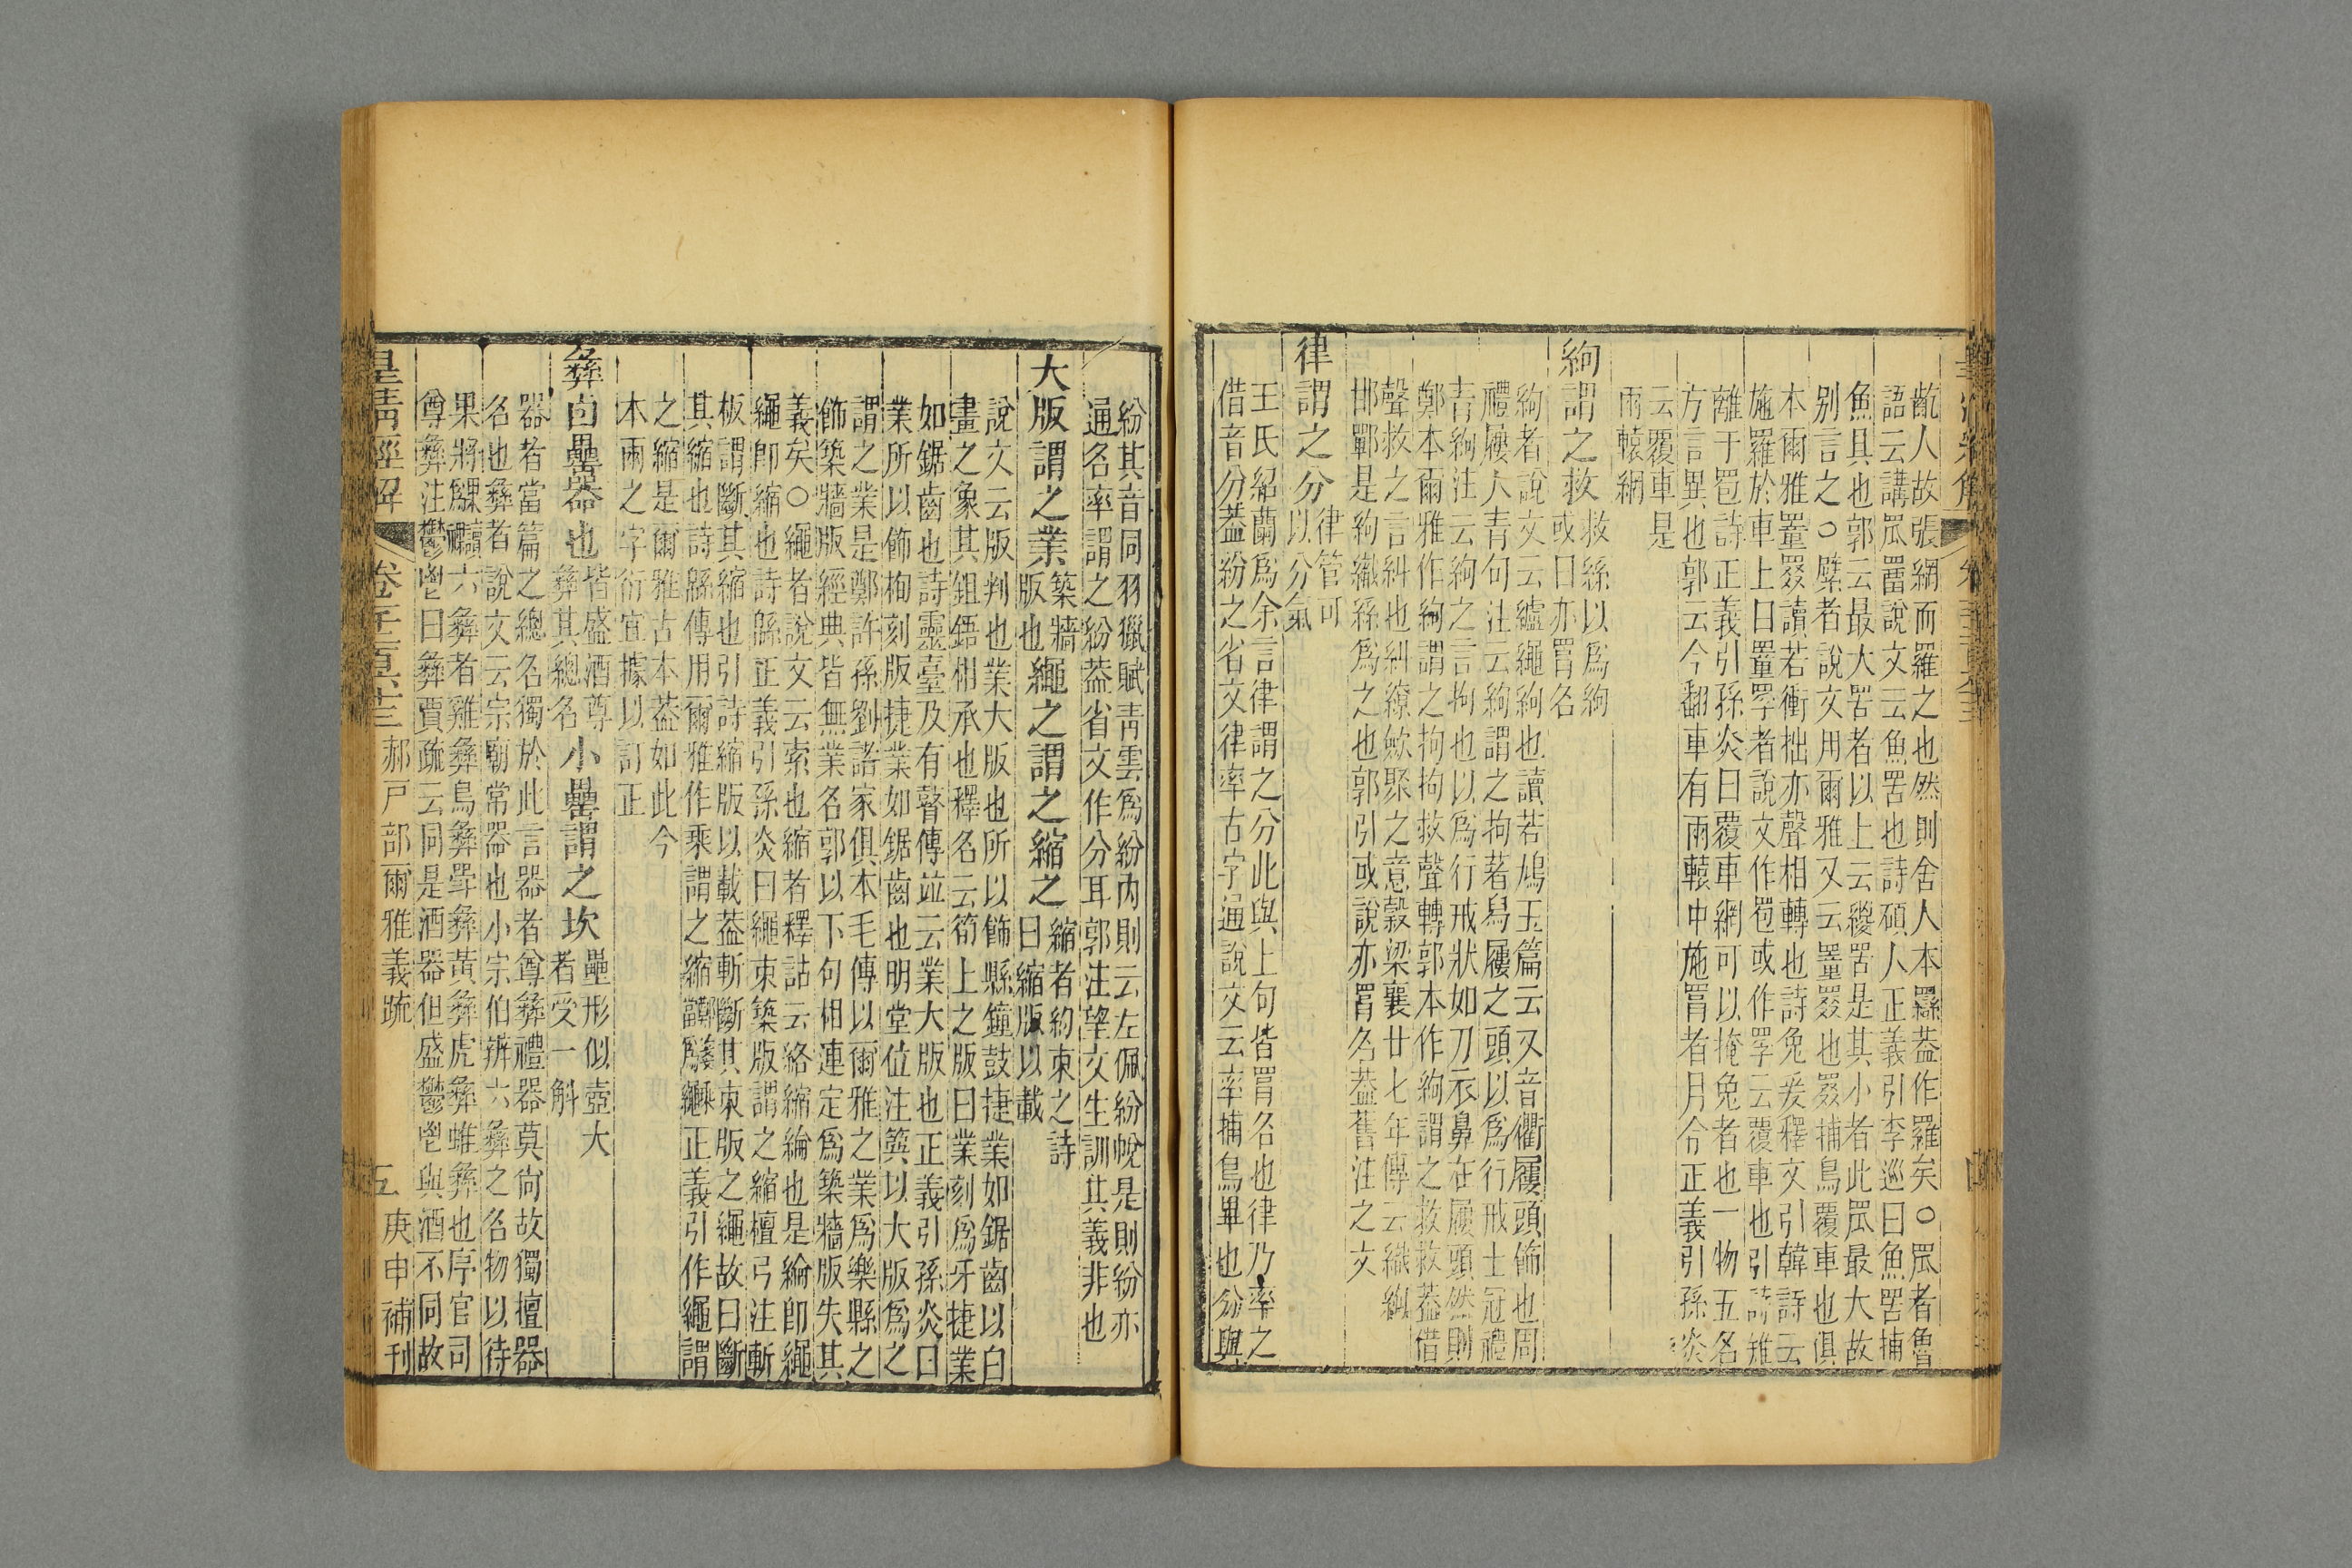 齔人故張網而羅之也然則舍人本羉葢作羅矣○罛者魯
語云講罛罶說文云魚罟也詩碩人正義引李巡曰魚罟捕
魚具也郭云最大罟者以上云緵罟是其小者此罛最大故
別言之○繴者說文用爾雅又云罿罬也罬捕鳥覆車也俱
本爾雅罿罬讀若衝拙亦聲相轉也詩兔爰釋文引韓詩云
施羅於車上曰罿罦者說文作䍖或作罦云覆車也引詩雉
離于䍖詩正義引孫炎曰覆車網可以掩兔者也一物五名
方言異也郭云今翻車有兩轅中施罥者月令正義引孫炎
云覆車是
兩轅網
絇謂之救
救絲以爲絇
或曰亦罥名
絇者說文云纑繩絇也讀若鳩玉篇云又音衢屨頭飾也周
禮屨人青句注云絇謂之拘著舄屨之頭以爲行戒士冠禮
青絇注云絇之言拘也以爲行戒狀如刀衣鼻在屨頭然則
鄭本爾雅作絇謂之拘拘救聲轉郭本作絇謂之救救葢借
聲救之言糾也糾繚斂聚之意穀梁襄廿七年傳云織絇
邯鄲是絇織絲爲之也郭引或說亦罥名葢舊注之文
律謂之分
律管可
以分氣
王氏紹蘭爲余言律謂之分此與上句皆罥名也律乃率之
借音分葢紛之省文律率古字通說文云率捕鳥畢也分與
紛其音同羽獵賦青雲爲紛內則云左佩紛帨是則紛亦
通名率謂之紛葢省文作分耳郭注望文生訓其義非也
大版謂之業
築牆
版也
繩之謂之縮之
縮者約束之詩
曰縮版以載
說文云版判也業大版也所以飾縣鐘鼓捷業如鋸齒以白
畫之象其鉏鋙相承也釋名云筍上之版曰業刻爲牙捷業
如鋸齒也詩靈臺及有瞽傳竝云業大版也正義引孫炎曰
業所以飾栒刻版捷業如鋸齒也明堂位注簨以大版爲之
謂之業是鄭許孫劉諸家俱本毛傳以爾雅之業爲樂縣之
飾築牆版經典皆無業名郭以下句相連定爲築牆版失其
義矣○繩者說文云索也縮者釋詁云絡縮綸也是綸卽繩
繩卽縮也詩緜正義引孫炎曰繩束築版謂之縮檀弓注斬
板謂斷其縮也引詩縮版以載葢斬斷其束版之繩故曰斷
其縮也詩緜傳用爾雅作乘謂之縮鄭箋繩正義引作繩謂
之縮是爾雅古本葢如此今
本兩之字衍宜據以訂正
彝卣罍器也
皆盛酒尊
彝其總名
小罍謂之坎
罍形似壺大
者受一斛
器者當篇之總名獨於此言器者尊彝禮器莫尚故獨檀器
名也彝者說文云宗廟常器也小宗伯辨六彝之名物以待
果將六彝者雞彝鳥彝斝彝黃彝虎彝蜼彝也序官司
尊彝注鬱鬯曰彝賈疏云同是酒器但盛鬱鬯與酒不同故
皇清經解
卷千二百六十三
郝戶部爾雅義疏
五
庚申補刊